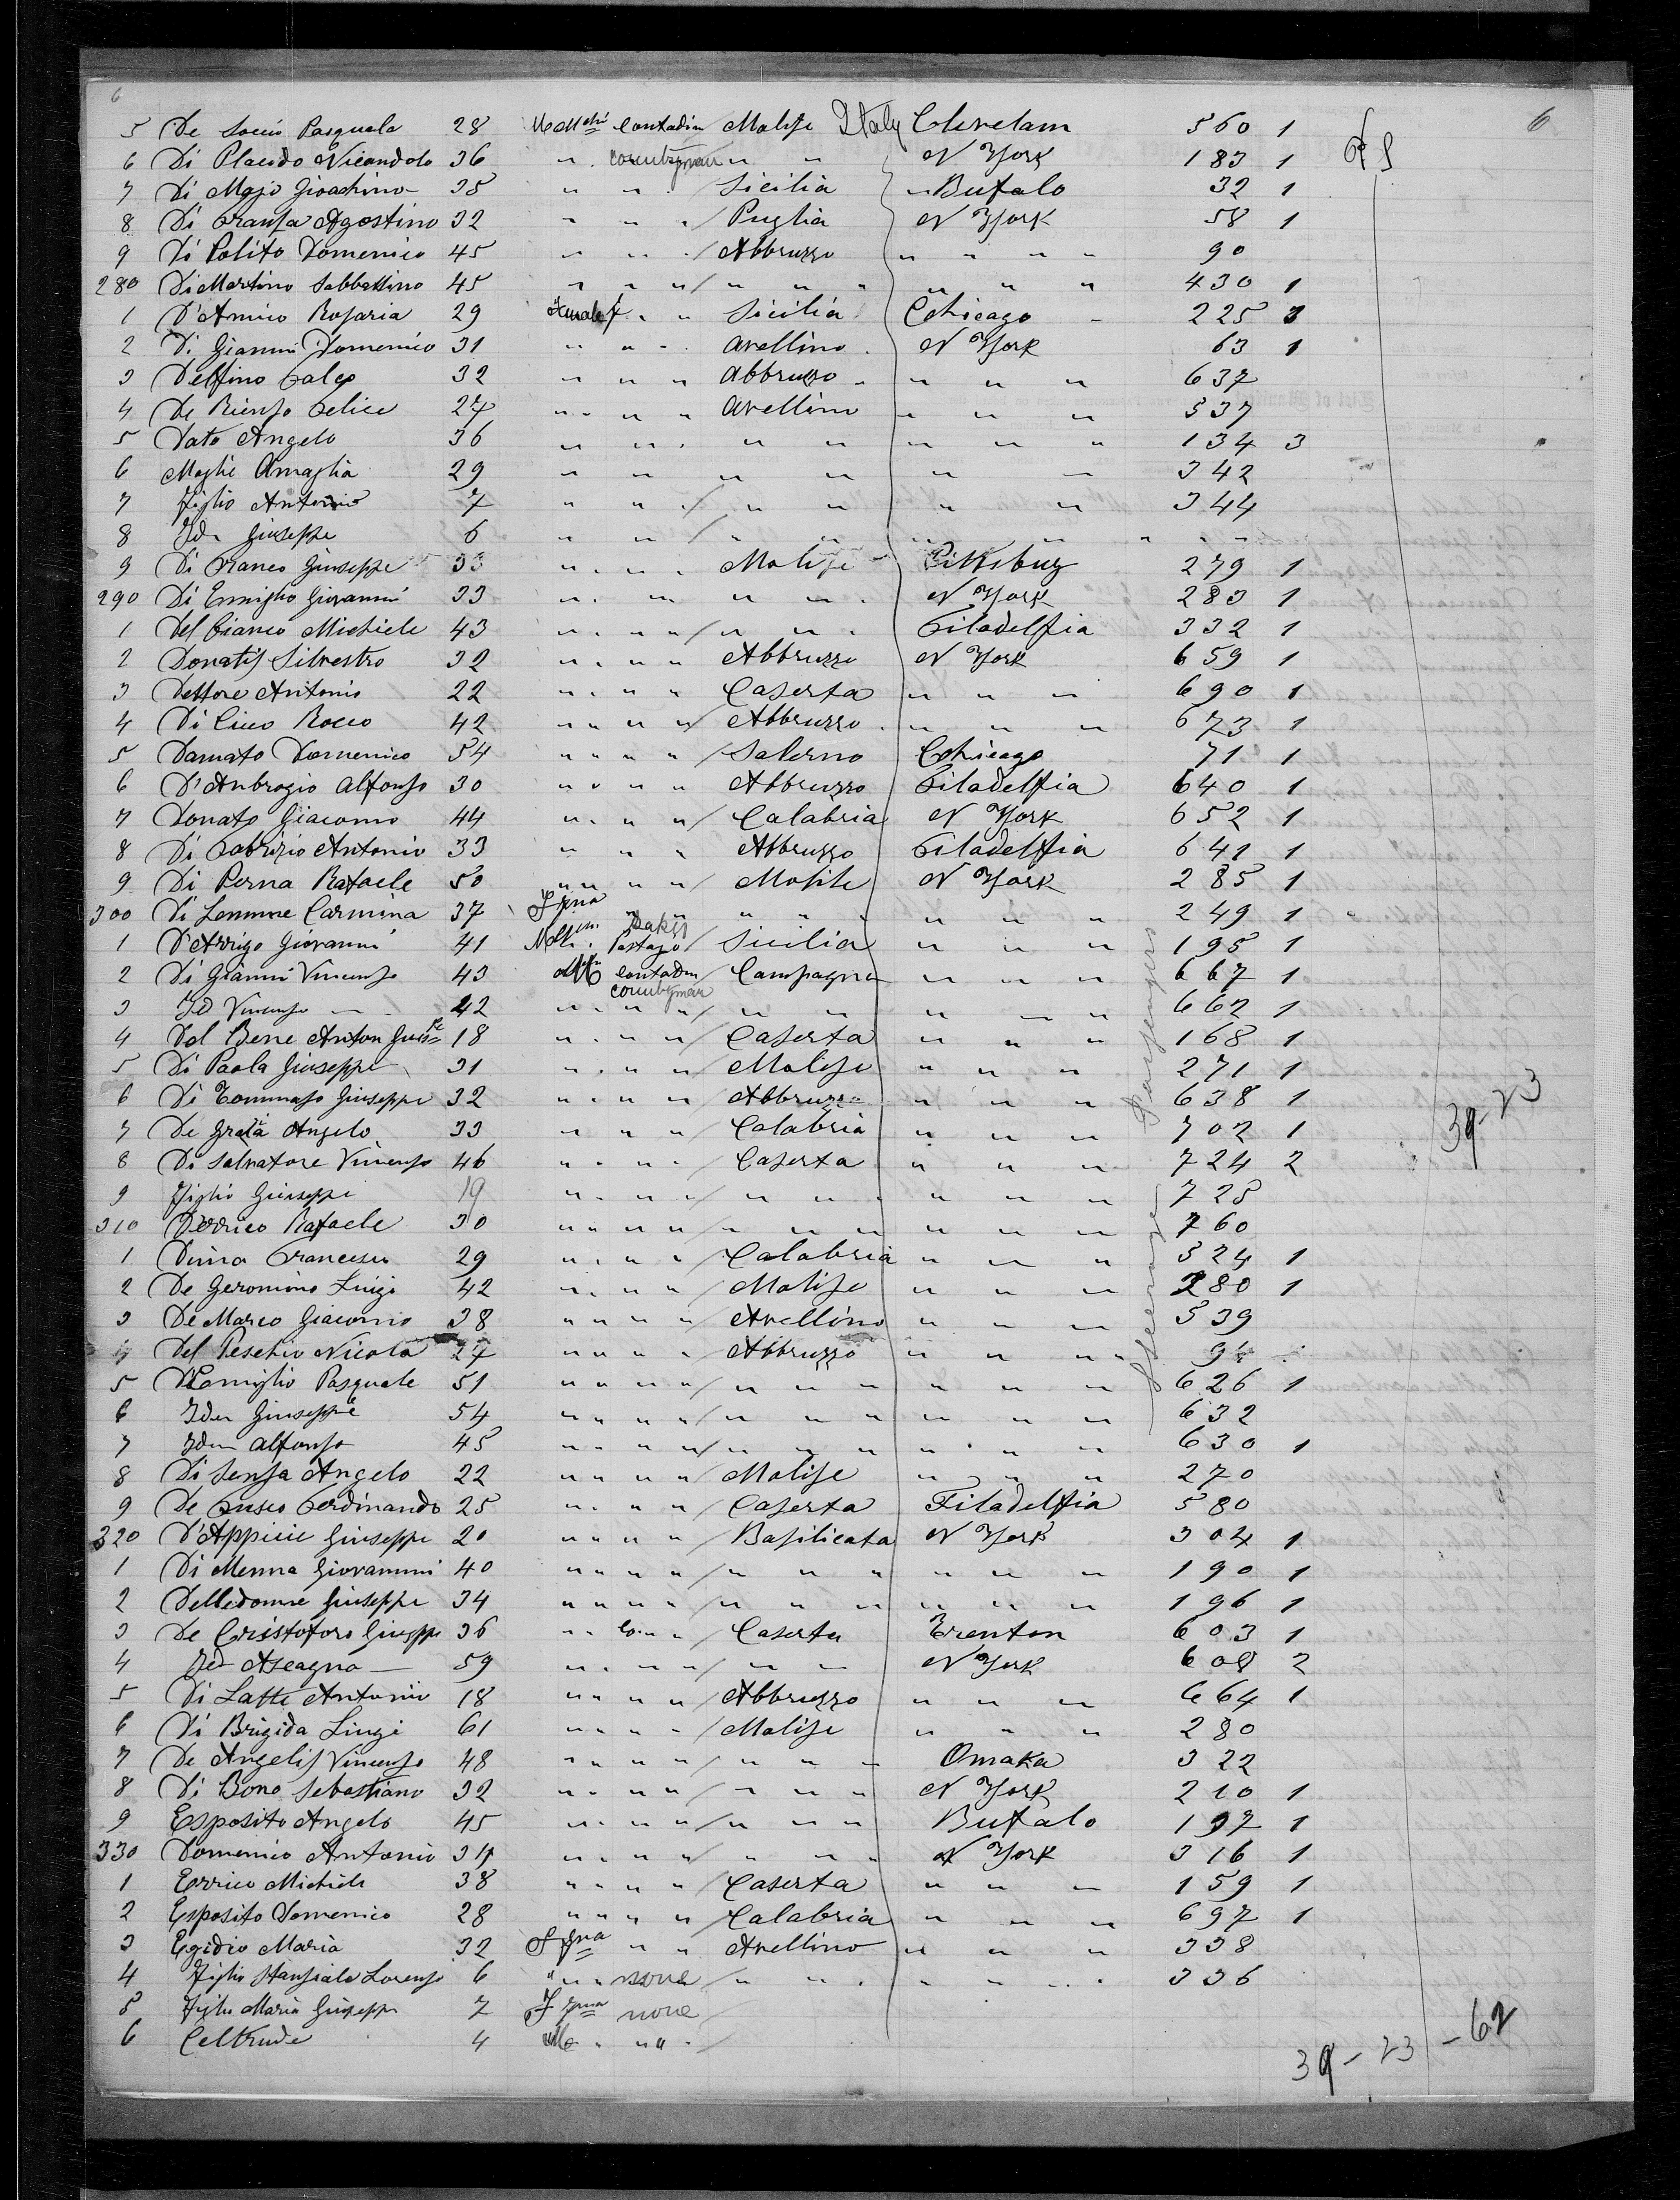 6 6
5 De Soccio Pasquale 28 M Contadin Molise Italy Clevelam 560 1
6 Di Placido Nicandolo 36 " countryman " " N York 183 1
7 Di Majo Gioachino 35 " " Sicilia " Bufalo 32 1
8 Di Franza Agostino 32 " " " Puglia N York 58 1
9 Di Polito Domenico 45 " " " Abbruzzo " " " " 90
280 Di Martino Sabbattino 45 " " " " " " " " " 430 1
1 D'Amico Rosaria 29 female f " " Sicilia Chicago 225 3
2 Di Gianni Domenico 31 " " " Avellino N York 63 1
3 Delfino 32 " " " Abbruzzo " " " 637
4 De Rienzo Felice 27 " " " " Avellino " " " 537
5 Dato Angelo 36 " " " " " " " " 134 3
6 Moglie Amaglia 29 " " " " " " 342
7 Figlio Antonio 7 " " " " " " 344
8 Idm Giuseppe 6 " " " " " " " " "
9 Di Franco Giuseppe 33 " " " " Molise Pittsburg 279 1
290 Di Ermiglio Giovanni 33 " " " " " N York 283 1
1 Del Bianco Michiele 43 " " " " " " " Filadelfia 332 1
2 Donatis Silvestro 32 " " " " Abbruzzo N York 659 1
3 Dettore Antonio 22 " " " " Caserta " " " 690 1
4 Di Cicco Rocco 42 " " " " Abbruzzo " " " 673 1
5 Damato Domenico 54 " " " " Salerno Chicago 71 1
6 D'Ambrogio Alfonso 30 " " " " Abbruzzo Filadelfia 640 1
7 Donato Giacomo 44 " " " " Calabria N York 652 1
8 Di Fabrizio Antonio 33 " " " Abbruzzo Filadelfia 641 1
9 Di Perna Rafaele 50 " " " " Molise N York 285 1
300 Di Lemme Carmina 37 " " " " " " " " 249 1
1 D'Arrigo Giovanni 41 Baker Pastajo Sicilia " " " 195 1
2 Di Gianni Vincenzo 43 contadin countryman Campagna " " " 667 1
3 Id Vincenzo 42 " " " " " " " " " 662 1
4 Del Bene Anton Gius pe 18 " " " " Caserta " " " 168 1
5 Di Paola Giuseppe 31 " " " " Molise " " " 271 1
6 Di Tommaso Giuseppe 32 " " " " Abbruzzo " " " 638 1
7 De Angelo 33 " " " Calabria " " " 702 1
8 Di Salvatore Vincenzo 46 " " " " Caserta " " " 724 2
9 Figlio Giuseppe 19 " " " " " " " " " " 725
310 Derrico Rafaele 30 " " " " " " " " " " 760
1 Dima Francesco 29 " " " " Calabria " " " 324 1
2 De Geronimo Luigi 42 " " " " Molise " " " 280 1
3 De Marco Giacomo 38 " " " " Avellino " " " 539
4 Del Peschio Nicola 27 " " " " Abbruzzo " " " "
5 Pasquale 51 " " " " " " " " " " 626 1
6 Idm Giuseppe 54 " " " " " " " " " " 632
7 Idm Alfonso 45 " " " " " " " " " " 630 1
8 Di Sensa Angelo 22 " " " " Molise " " " " 270
9 De Fusco Ferdinando 25 " " " " Caserta Filadelfia 580
320 D'Appicie Giuseppe 20 " " " " Basilicata N York 304 1
1 Di Menna Giovanni 40 " " " " " " " " " " 190 1
2 Delledonne Giuseppe 34 " " " " " " " " " " 196 1
3 De Cristofaro Giuseppe 36 " " " Caserta Trenton 603 1
4 Idm Ascagno 59 " " " " " " N York 608 2
5 Di Latte Antonio 18 " " " " Abbruzzo " " " 664 1
6 Di Brigida Luigi 61 " " " " Molise " " " 280
7 De Angelis Vincenzo 48 " " " " " " " Omaka 322
8 Di Bono Sebastiano 32 " " " " " " " N York 210 1
9 Esposito Angelo 45 " " " " " " " Bufalo 197 1
330 Domenico Antonio 34 " " " " " " " N York 316 1
1 Errico Michiele 38 " " " " Caserta " " " 159 1
2 Esposito Domenico 28 " " " " Calabria " " " 697 1
3 Egidio Maria 32 " " Avellino " " " 338
4 Figlio Lorenzo 6 " " " none " " " " " " 336
5 Figlia Maria Giuseppa 7 none
6 Celtrude 4 " " "
39-23
39-23-62